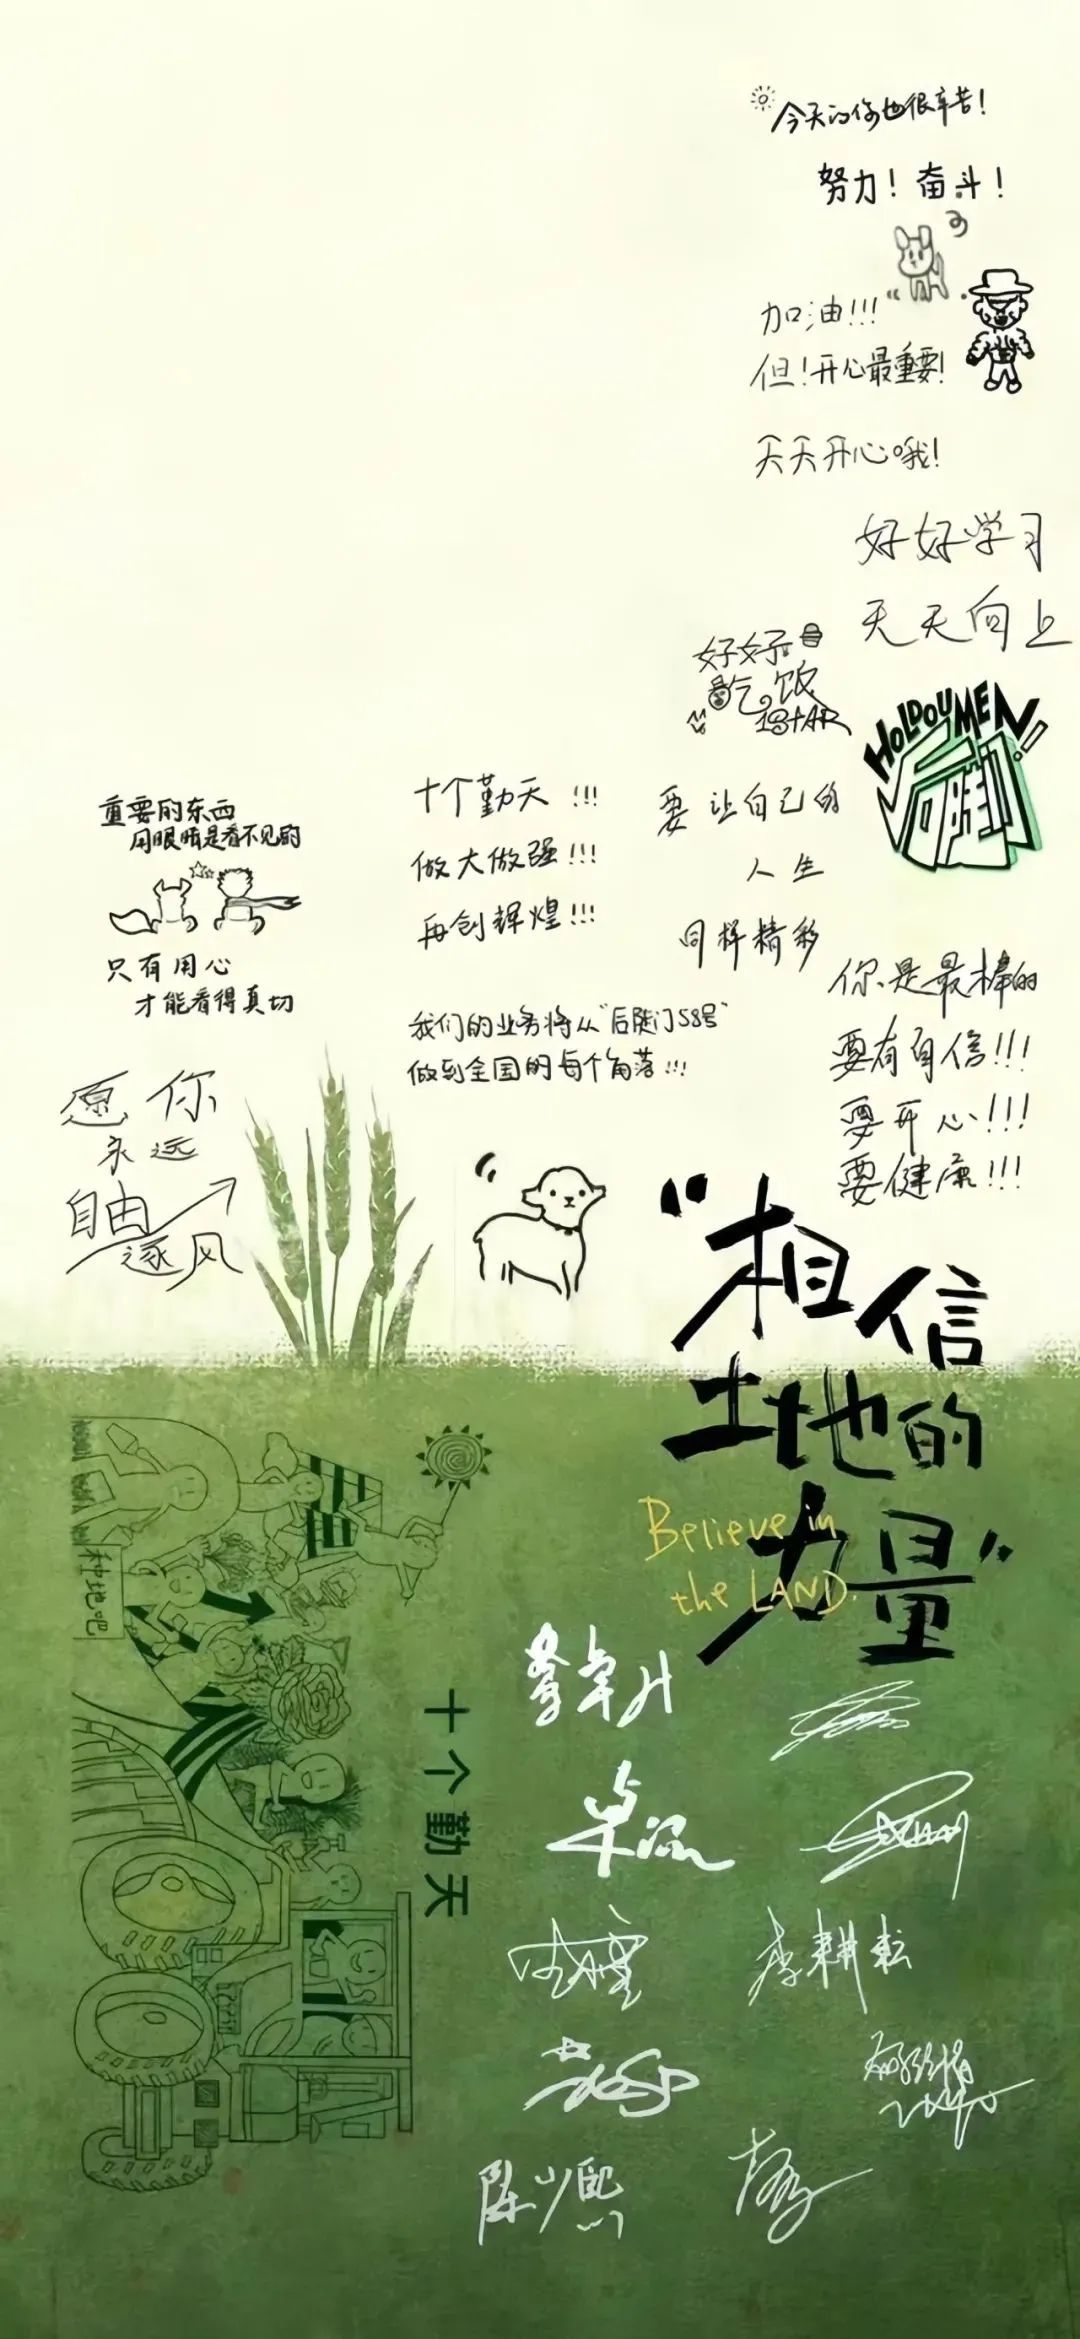 今天的你也很辛苦!
努力! 奋斗!
加油!!!
但!开心最重要!
天天开心哦!
好好学习
天天向上
好好
吃饭
1STAR
HOLDOUMEN
后陡门!!
重要的东西
用眼睛是看不见的
只有用心
才能看得真切
十个勤天!!!
做大做强!!!
再创辉煌!!!
要让自己的
人生
同样精彩
我们的业务将从"后陡门58号"
做到全国的每个角落!!!
你是最棒的
要有自信!!!
要开心!!!
要健康!!!
愿你
永远
自由
逐风
"相信
土地的
力量"
Believe in
the LAND.
种地吧
十个勤天
卓沅
李耕耘
陈少熙